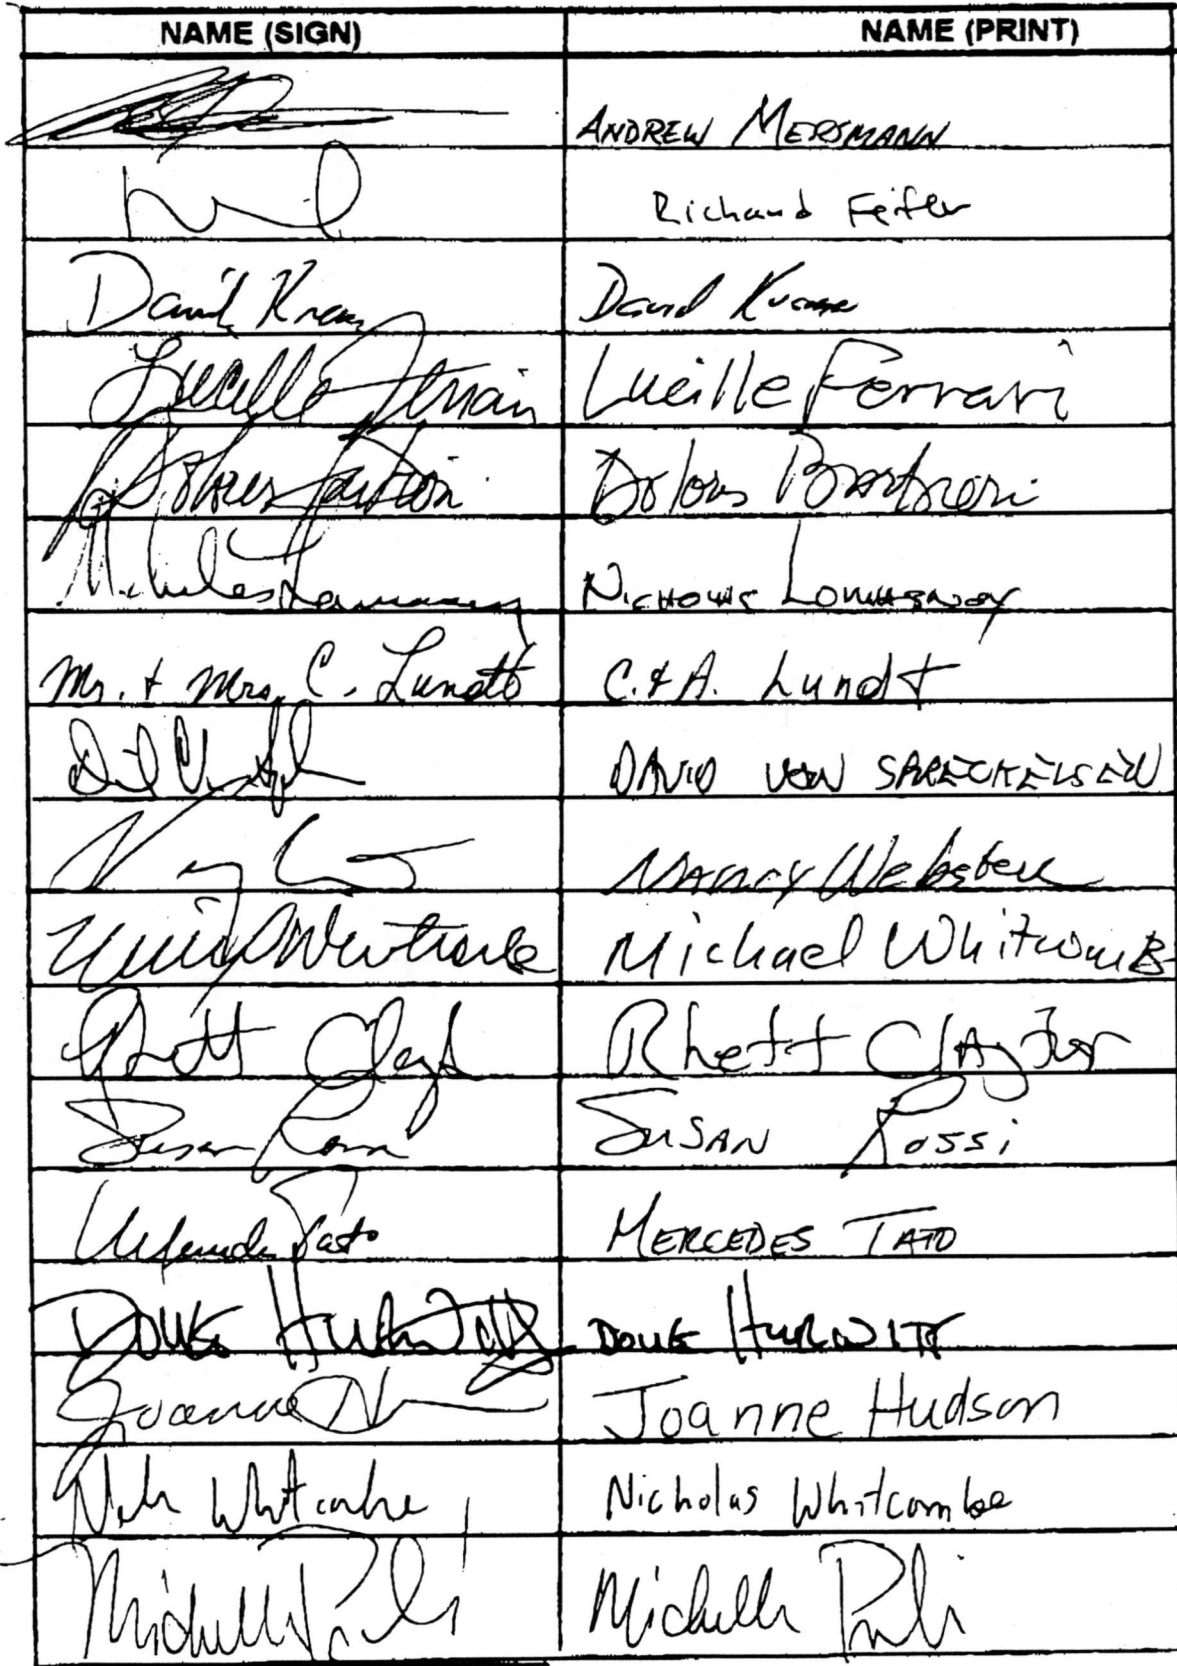 NAME (SIGN) NAME (PRINT)
ANDREW MERSMANN
Richard Feifer
David David
Lucille Lucille Ferrari
Dolores Dolores
Nicholas
Mr. + Mrs. C. Lundt C. + A. Lundt
DAVID VON SPRECKELSEN
NANCY Webster
Michael Whitcomb
Rhett Rhett Claytor
Susan Rossi SUSAN ROSSI
Tato MERCEDES TATO
DOUG HURWITZ DOUG HURWITT
Joanne Joanne Hudson
Nick Whitcombe Nicholas Whitcombe
Michelle Michelle